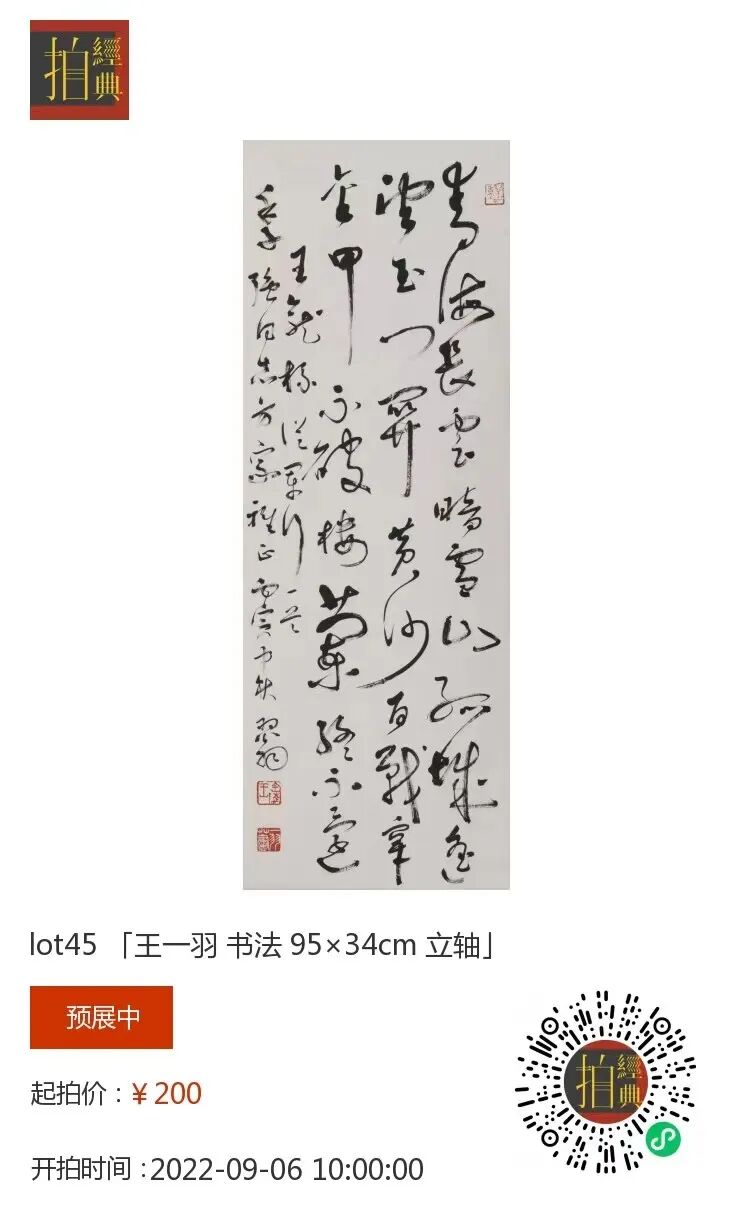 經典
拍
青海長雲暗雪山孤城遙
望玉门關黄沙百戰穿
金甲不破樓蘭終不還
王龍標從軍行一首
強同志方家雅正丙寅中秋
lot45 「王一羽 书法 95×34cm 立轴」
预展中
起拍价：¥ 200
开拍时间：2022-09-06 10:00:00
經典
拍